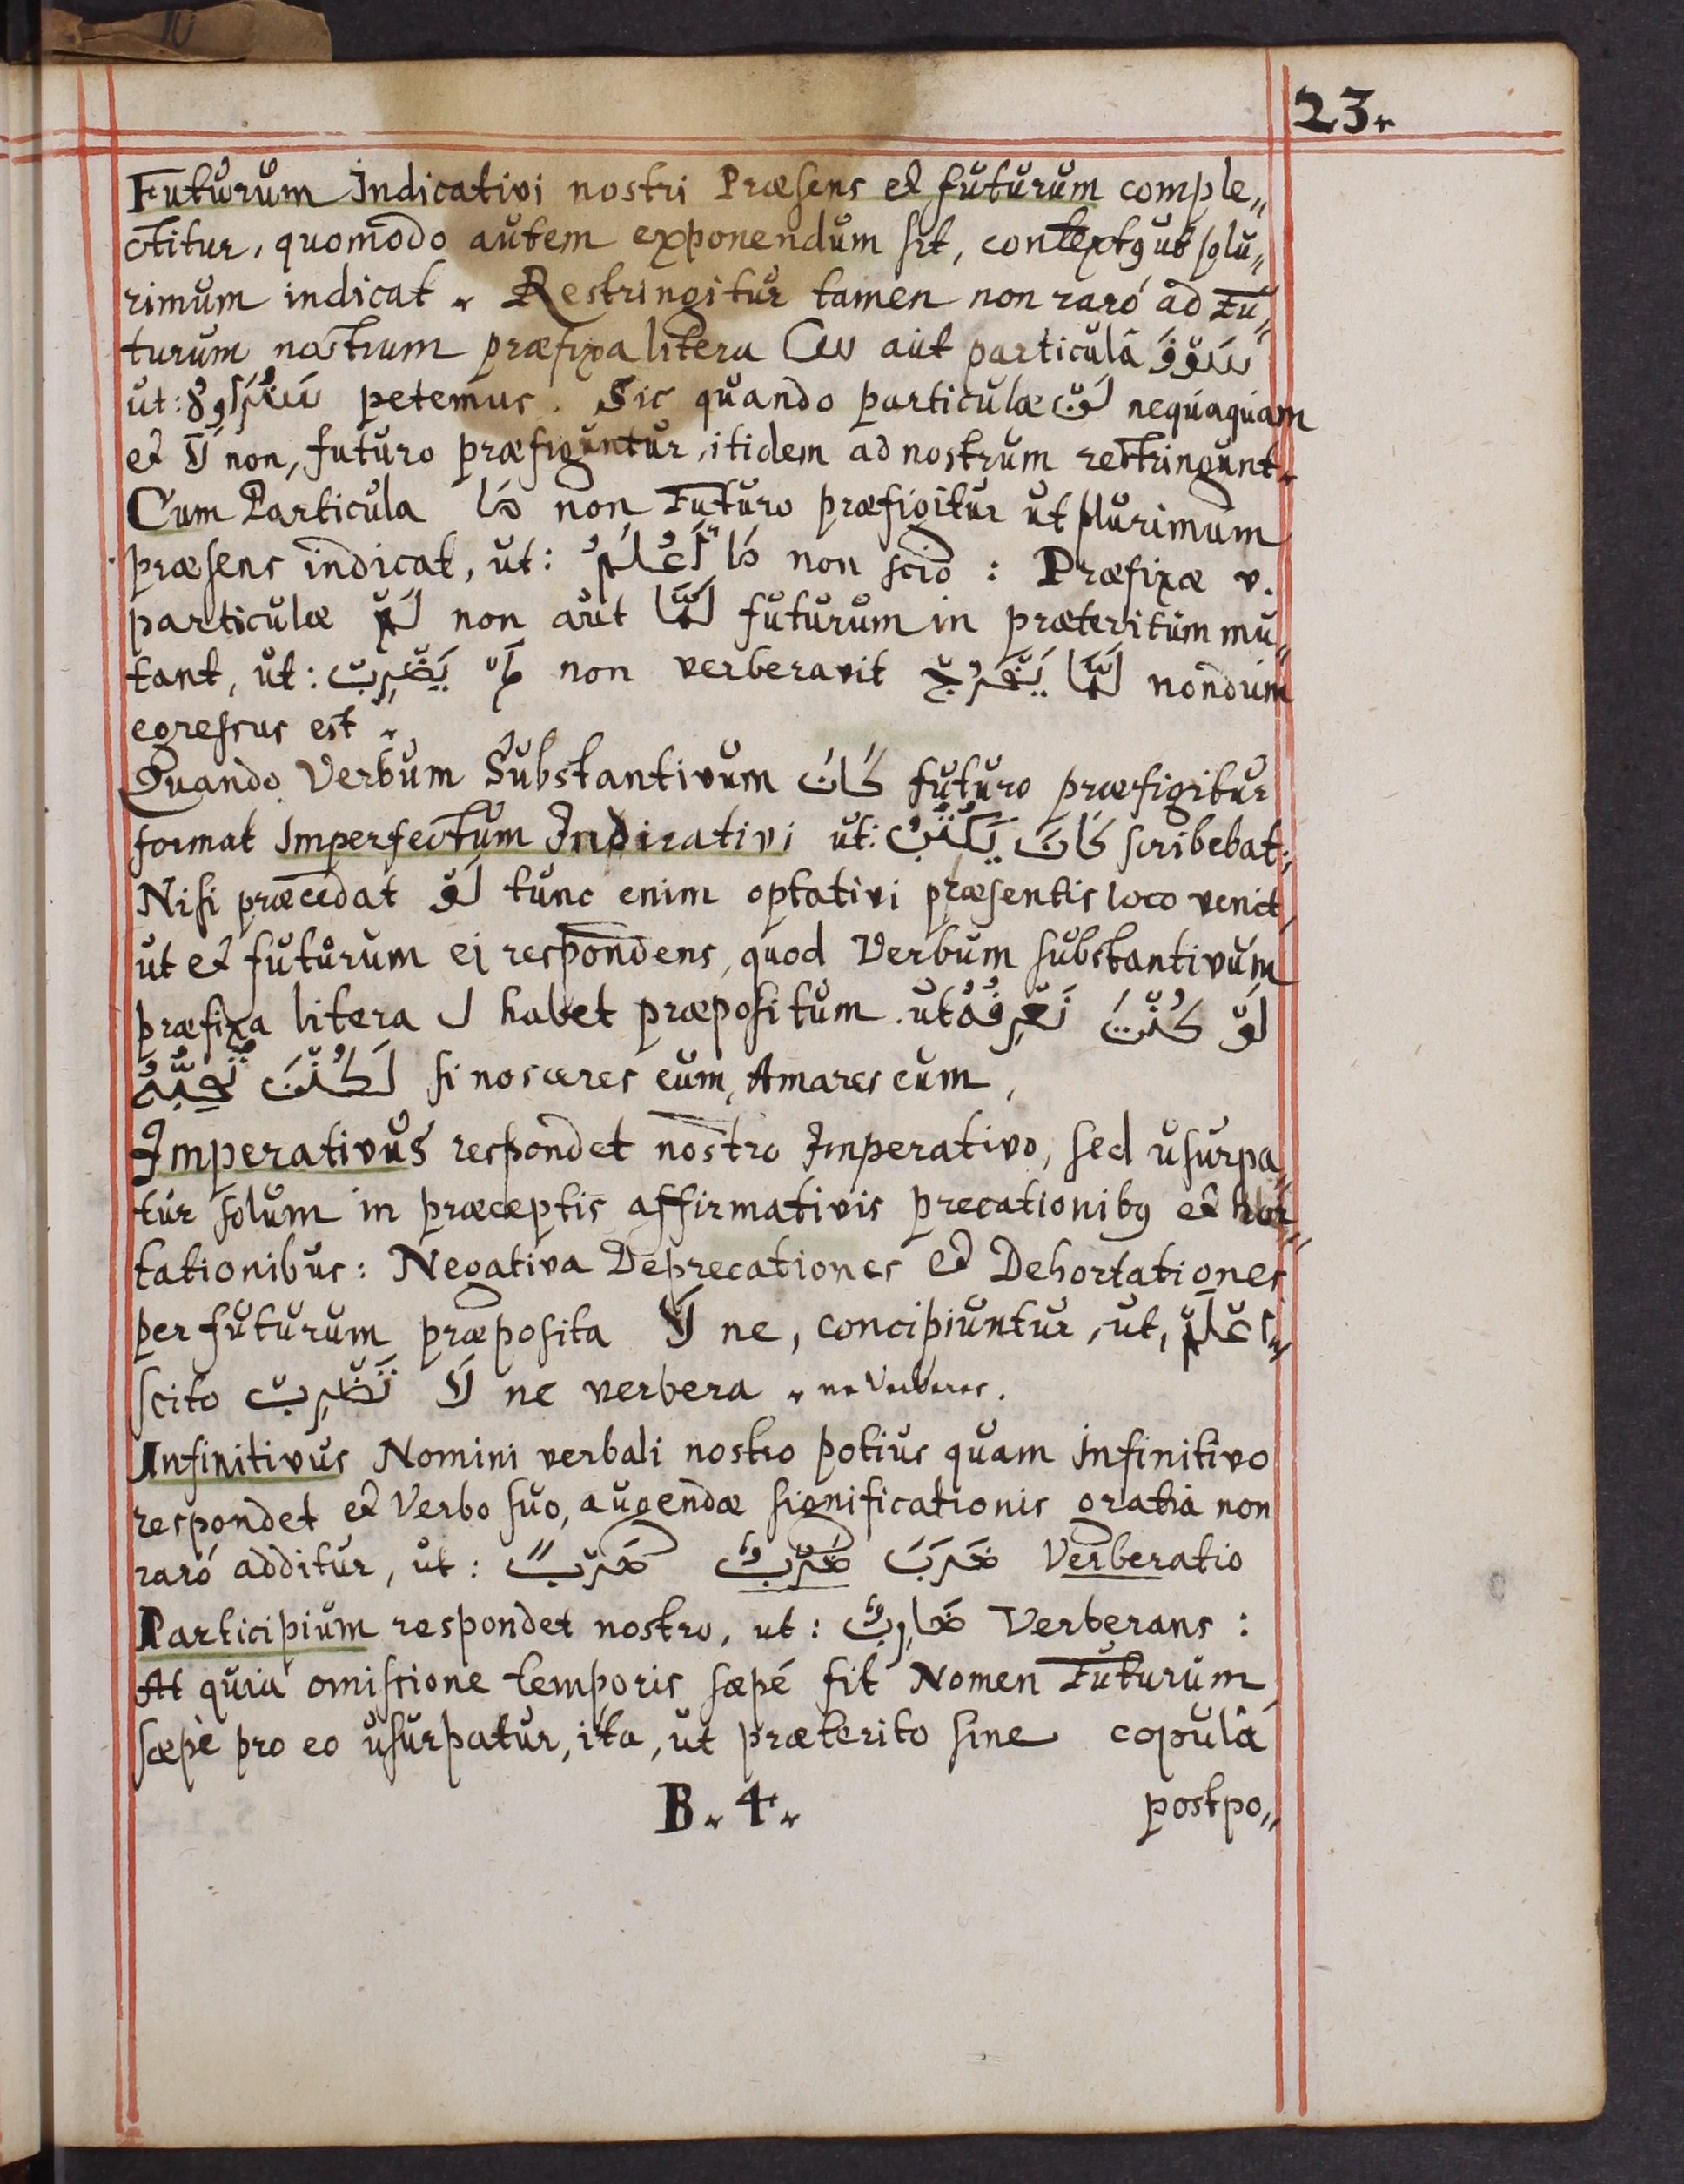 23.
Futurum Indicativi nostri Præsens et futurum comple„
ctitur, quomodo autem exponendum sit, contextus ut plu„
rimum indicat. Restringitur tamen non raró ad Fu„
turum nostrum præfixa litera س aut particulâ سَوْفَ
ut: petemus. Sic quando particulæ لَنْ nequaquam
et لَا non, futuro præfiguntur, itidem ad nostrum restringunt.
Cum Particula مَا non Futuro præfigitur ut plurimum
præsens indicat, ut: مَا أَعْلَمُ non scio: Præfixæ v.
particulæ لَمْ non aut لَمَّا futurum in præteritum mu„
tant, ut: لَمْ يَضْرِبْ non verberavit لَمَّا يَخْرُجْ nondum
egressus est.
Quando Verbum Substantivum كَانَ futuro præfigitur
format Imperfectum Indicativi ut: كَانَ يَكْتُبُ scribebat:,
Nisi præcedat لَوْ tunc enim optativi præsentis loco venit,
ut et futurum ei respondens, quod Verbum substantivum
præfixa litera ل habet præpositum. ut لَوْ كُنْتَ تَعْرِفُهُ
لَكُنْتَ تُحِبُّهُ si nosceres eum, Amares eum,
Imperativus respondet nostro Imperativo, sed usurpa„
tur solum in præceptis affirmativis precationibus et hor„
tationibus: Negativa Deprecationes et Dehortationes
per futurum præposita لَا ne, concipiuntur, ut, اعْلَمْ
scito لَا تَضْرِبْ ne verbera. ne Verberes.
Infinitivus Nomini verbali nostro potius quam Infinitivo
respondet et Verbo suo, augendæ significationis gratiâ non
raró additur, ut: ضَرَبَ ضَرْبٌ ضَرْبً Verberatio
Participium respondet nostro, ut: ضَارِبٌ Verberans:
At quia omissione temporis sæpé fit Nomen Futurum
sæpè pro eo usurpatur, ita, ut præterito sine copulâ
B. 4. postpo„